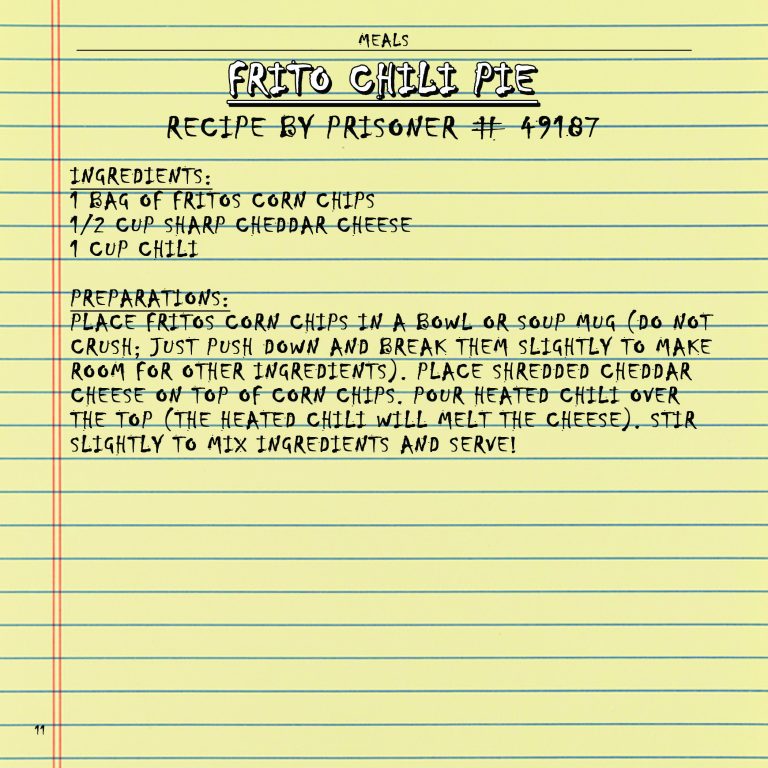 MEALS
FRITO CHILI PIE
RECIPE BY PRISONER # 49187
INGREDIENTS:
1 BAG OF FRITOS CORN CHIPS
1/2 CUP SHARP CHEDDAR CHEESE
1 CUP CHILI
PREPARATIONS:
PLACE FRITOS CORN CHIPS IN A BOWL OR SOUP MUG (DO NOT
CRUSH; JUST PUSH DOWN AND BREAK THEM SLIGHTLY TO MAKE
ROOM FOR OTHER INGREDIENTS). PLACE SHREDDED CHEDDAR
CHEESE ON TOP OF CORN CHIPS. POUR HEATED CHILI OVER
THE TOP (THE HEATED CHILI WILL MELT THE CHEESE). STIR
SLIGHTLY TO MIX INGREDIENTS AND SERVE!
11